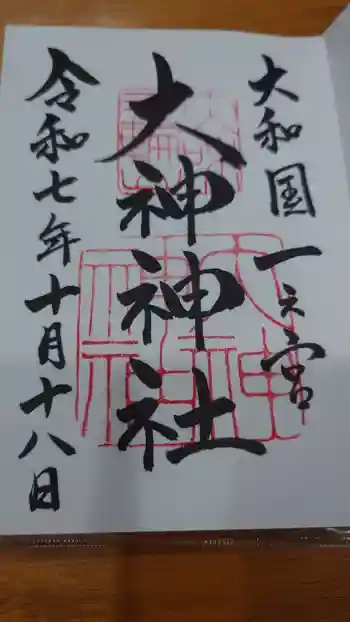 大和国一之宮
大神神社
令和七年十月十八日